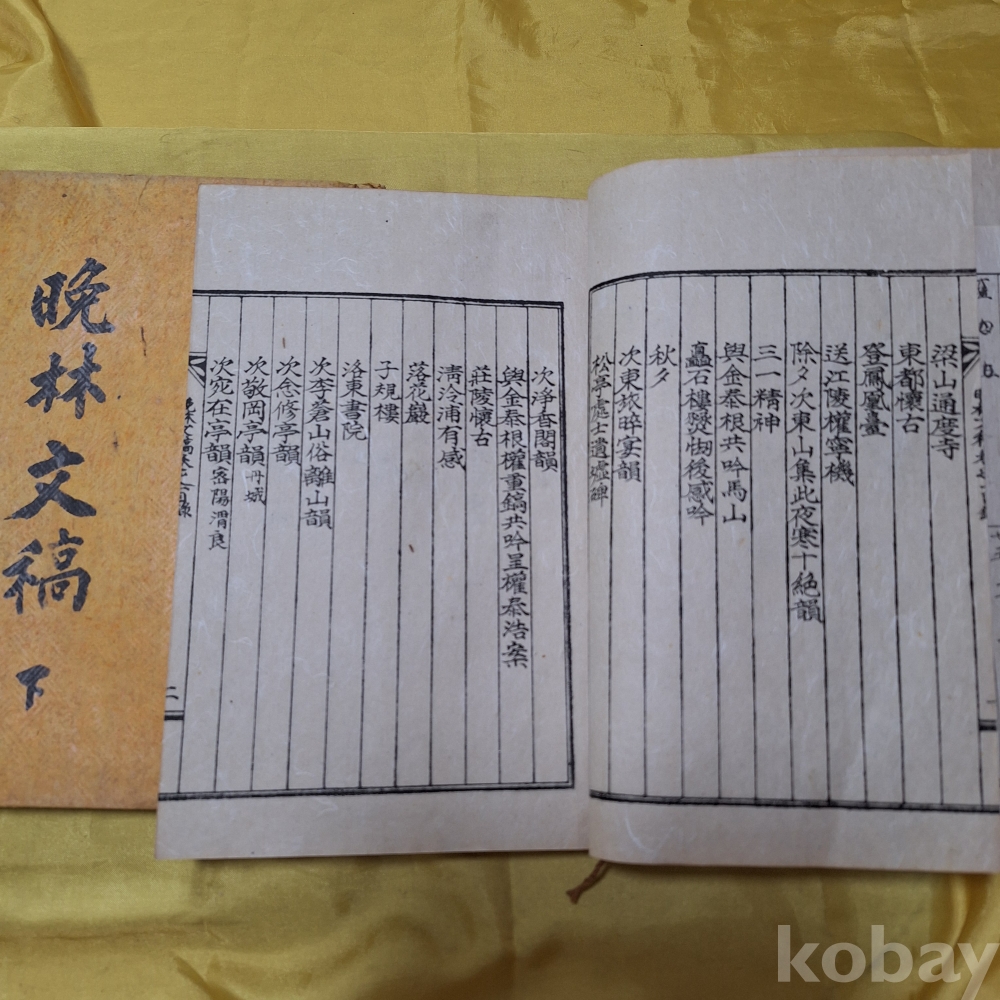 晩林文稿 下
梁山通度寺
東都懷古
登鳳凰臺
送江陵權寧機
除夕次東山集此夜寒十絶韻
三一精神
與金泰根共吟馬山
矗石樓發㤼後感吟
秋夕
次東旅晬宴韻
松亭處士遺墟碑
次浄香閣韻
與金泰根權重鎬共吟呈權泰浩案
莊陵懷古
清泠浦有感
落花巖
子規樓
洛東書院
次李蒼山俗離山韻
次念修亭韻
次敬岡亭韻 丹城
次宛在亭韻 密陽渭良
二
kobay